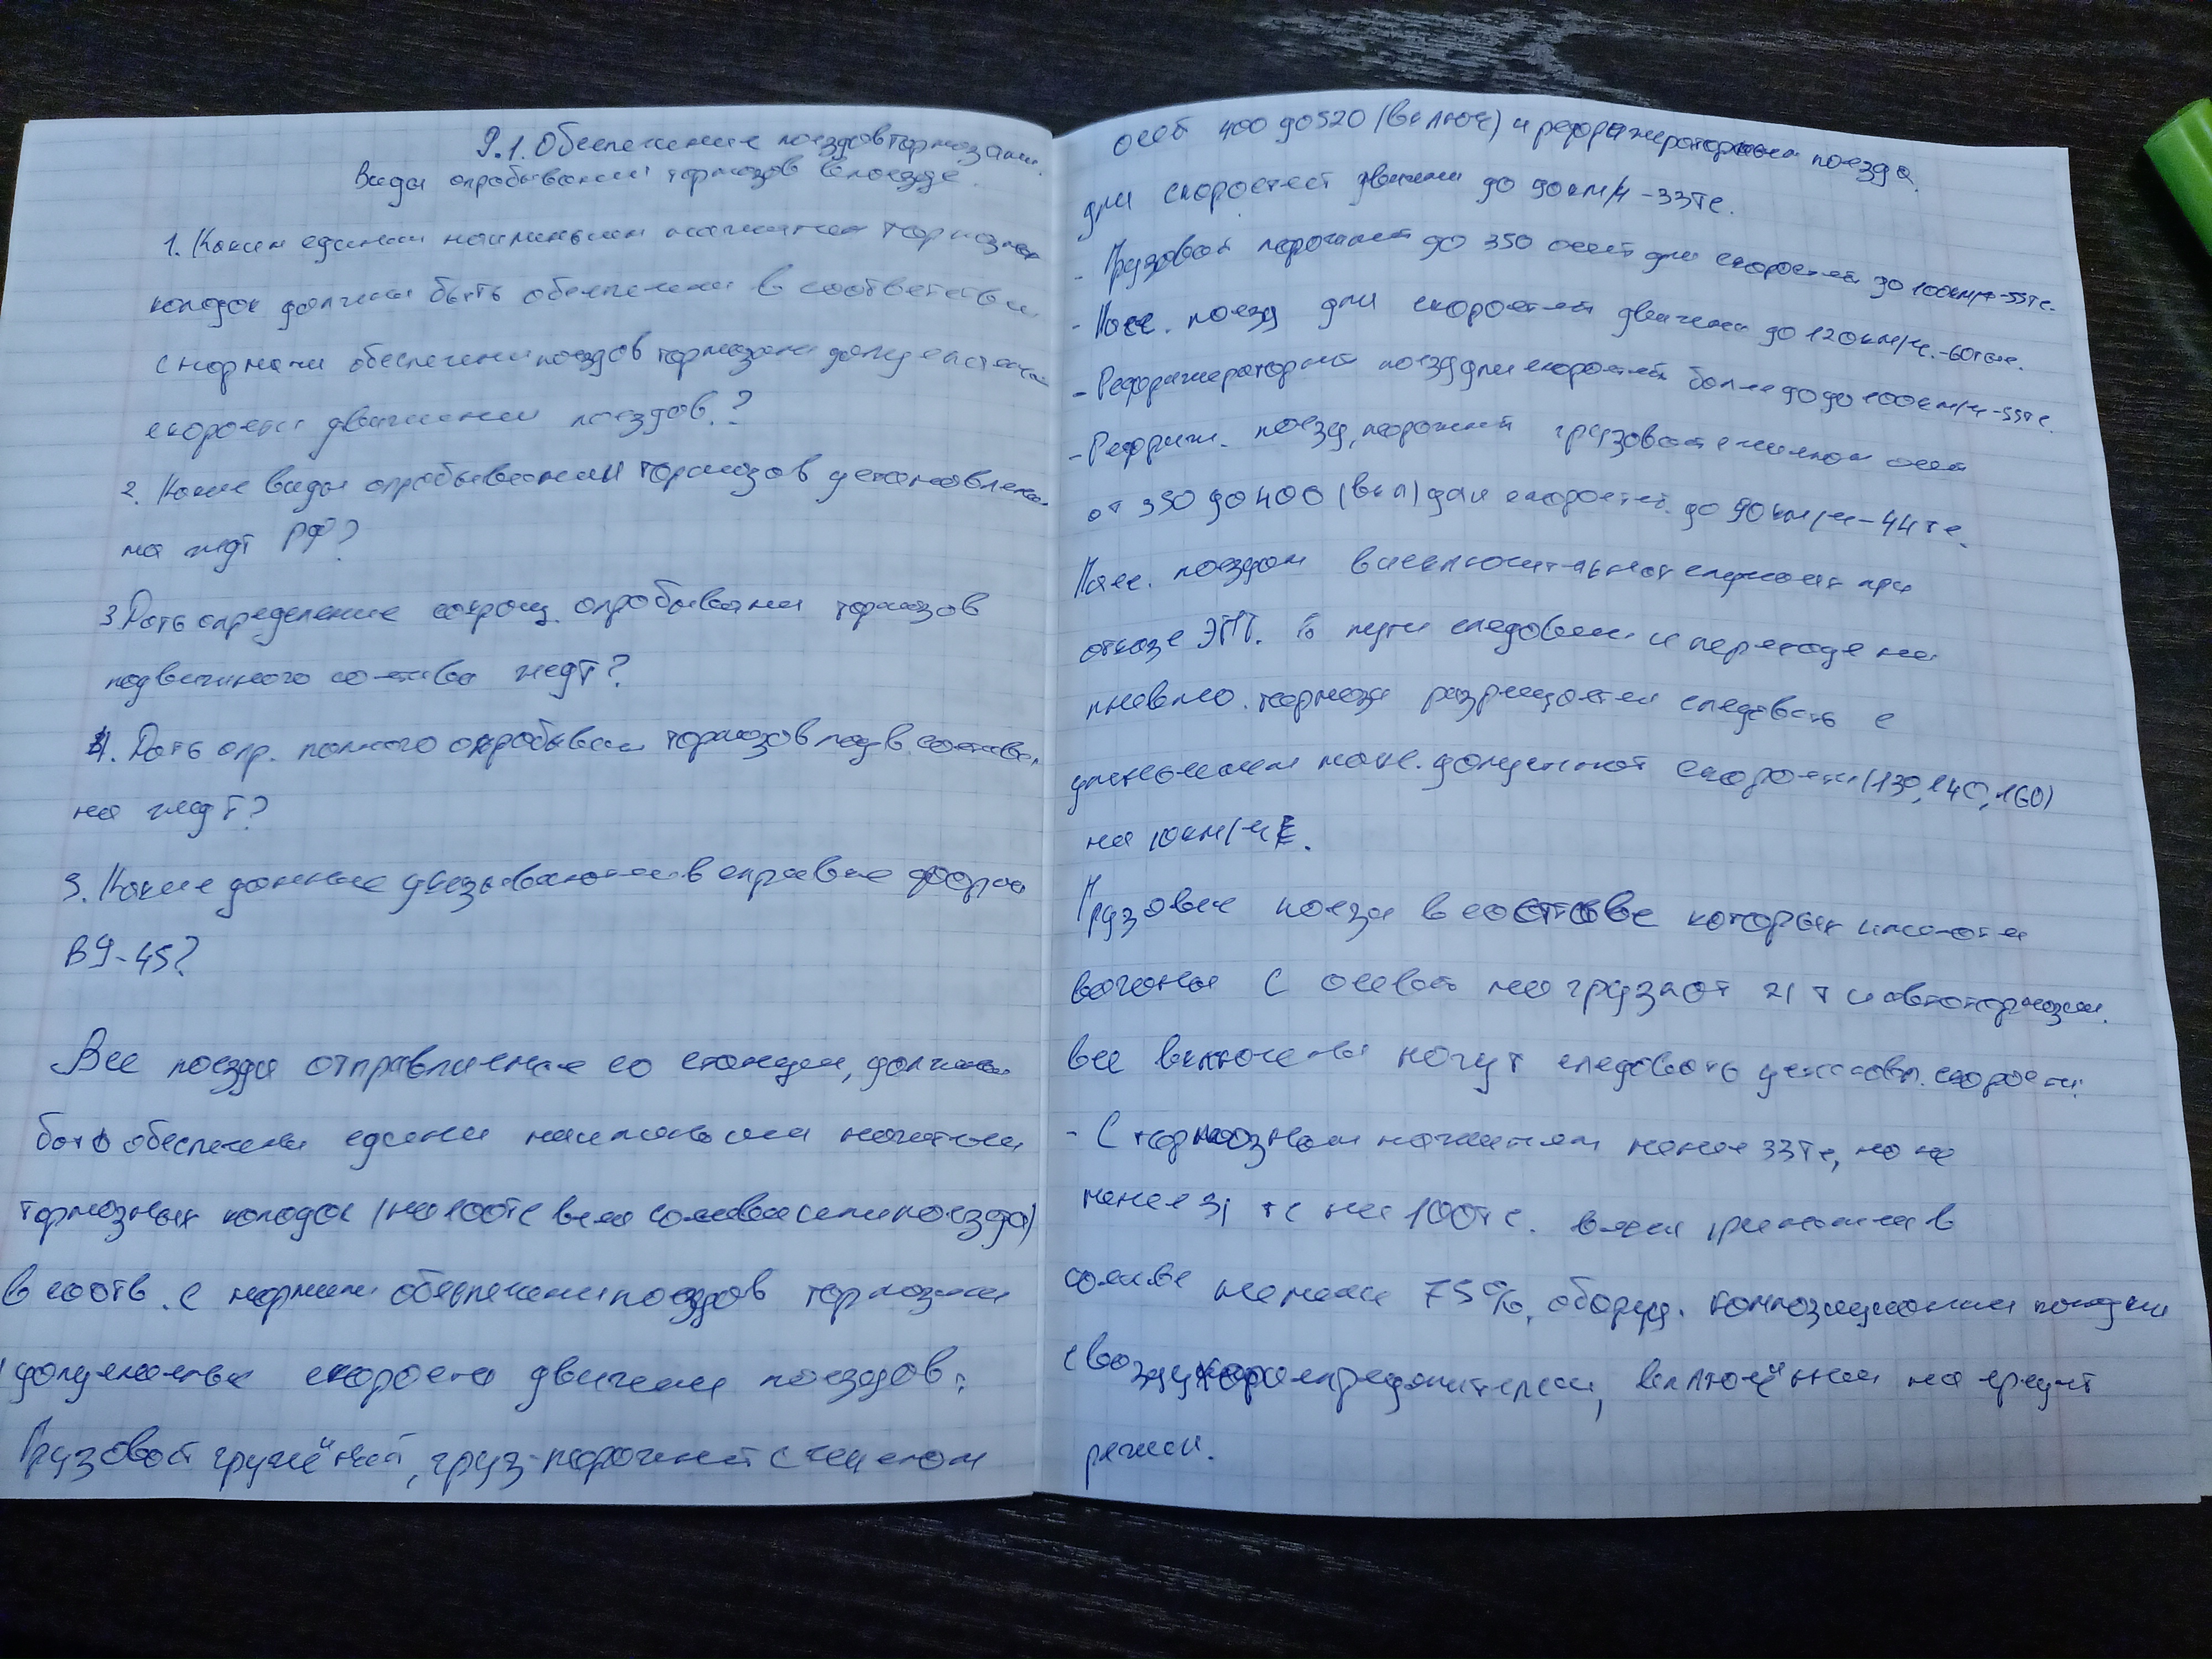 9.1. Обеспечение поездов тормозами.
Виды опробывания тормозов в поезде.
1. Каким единым наименьшим нажатием тормозных
колодок должны быть обеспечены в соответствии
с нормами обеспечения поездов тормозами допускаемые
скорости движения поездов?
2. Какие виды опробывания тормозов установлены
на ждт РФ?
3 Дать определение сокращ. опробывания тормозов
подвижного состава ждт?
4. Дать опр. полного опробыван тормозов подв. состава
на ждт?
5. Какие данные указываются в справке форма
ВУ-45?
Все поезда отправляемые со станции, должны
быть обеспечены единым наименьшим нажатием
тормозных колодок (на 100тс веса состава или поезда)
в соотв. с нормами обеспечения поездов тормозами
допускаемые скорости движения поездов:
Грузовой гружёный, груз-порожний с числом
осей 400 до 520 (включ) и рефрижераторные поезда
для скоростей движения до 90 км/ч - 33тс.
- Грузовой порожний до 350 осей для скоростей до 100км/ч - 55тс.
- Пасс. поезд для скоростей движения до 120км/ч. - 60тс.
- Рефрижераторный поезд для скоростей более до до 100км/ч - 55тс.
- Рефриж. поезд, порожний грузовой с числом осей
от 350 до 400 (вкл) для скоростей до 90 км/ч - 44тс.
Пасс. поездам в исключительных случаях при
отказе ЭПТ. в пути следования и переходе на
пневмо. тормоза разрешается следовать с
уменьшением макс. допускаемой скорости (130, 140, 160)
на 10км/ч.
Грузовые поезда в составе которых имеются
вагоны с осевой нагрузкой 21 т и автотормоза
все включены могут следовать установ. скорости:
- С тормозным нажатием менее 33тс, но не
менее 31 тс на 100тс. веса при наличии в
составе не менее 75%, оборуд. композиционными колодками
с воздухораспределителями, включёнными на средний
режим.